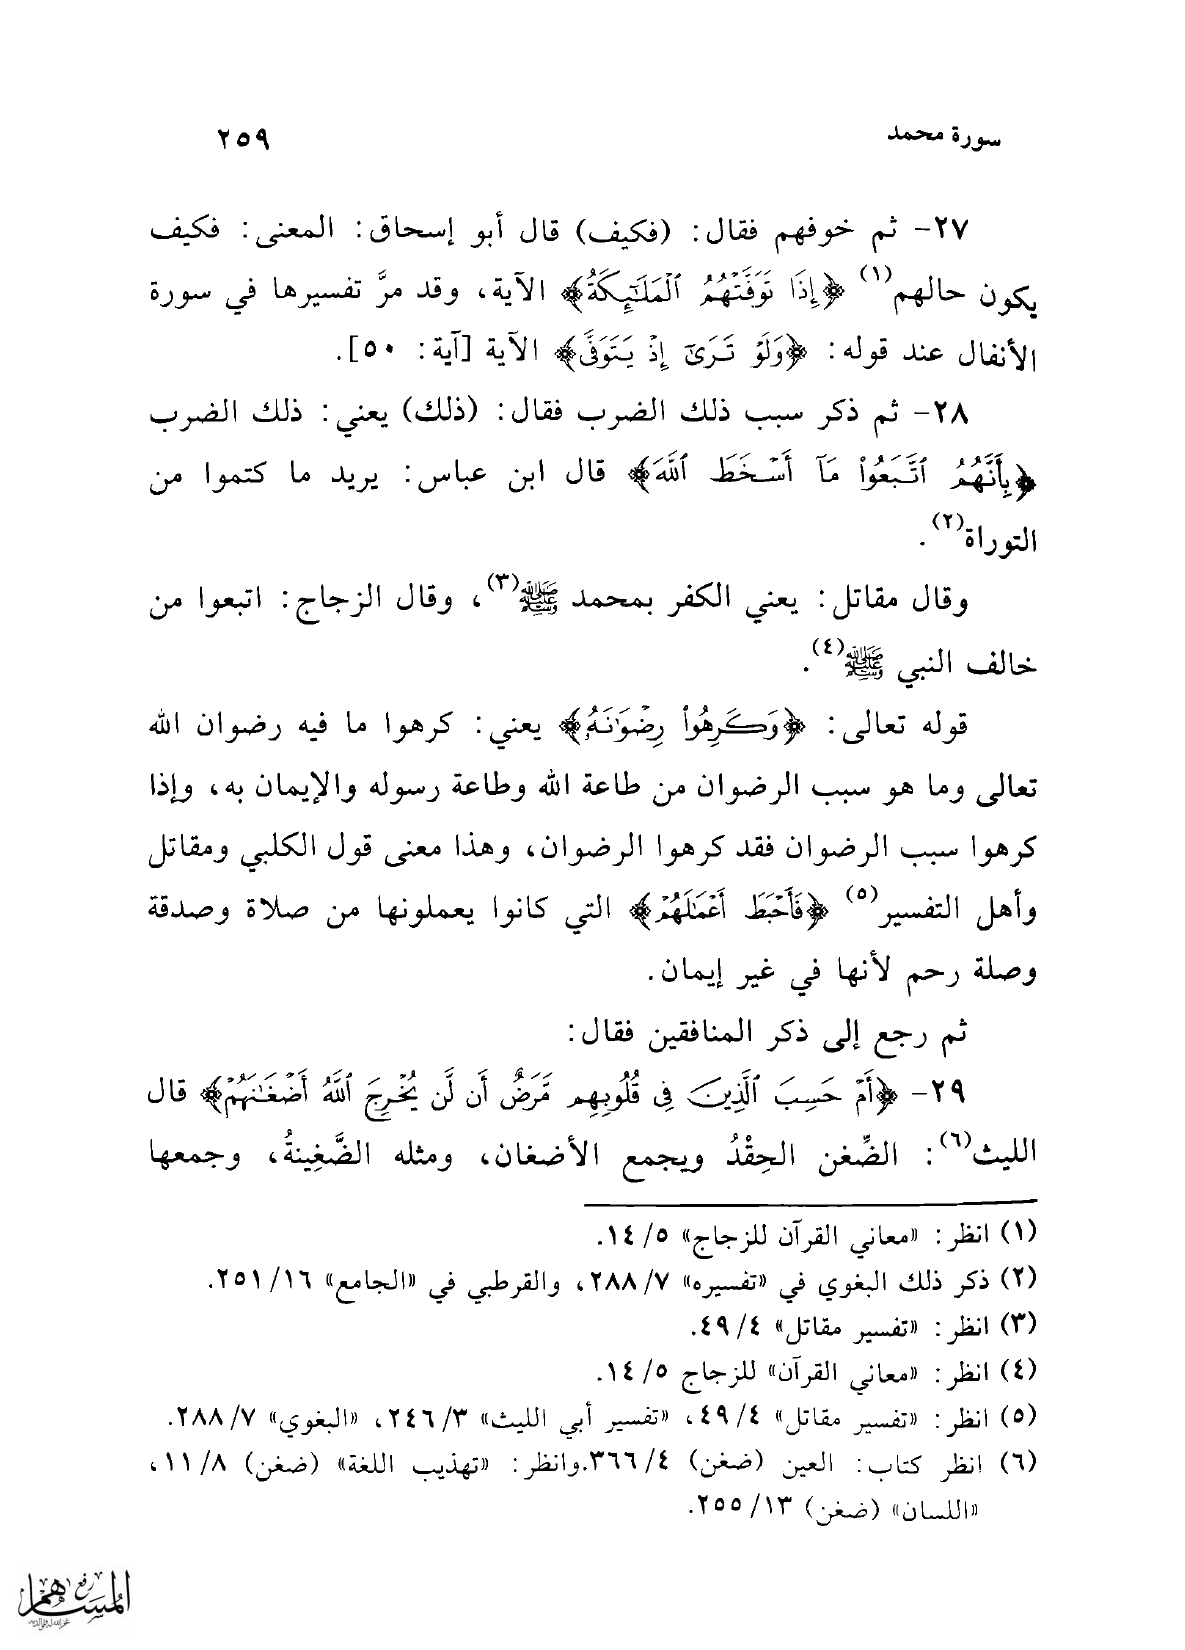 سورة محمد ٢٥٩
٢٧- ثم خوفهم فقال: (فكيف) قال أبو إسحاق: المعنى: فكيف
يكون حالهم(١) ﴿إِذَا تَوَفَّتْهُمُ ٱلْمَلَٰٓئِكَةُ﴾ الآية، وقد مرَّ تفسيرها في سورة
الأنفال عند قوله: ﴿وَلَوْ تَرَىٰٓ إِذْ يَتَوَفَّى﴾ الآية [آية: ٥٠].
٢٨- ثم ذكر سبب ذلك الضرب فقال: (ذلك) يعني: ذلك الضرب
﴿بِأَنَّهُمُ ٱتَّبَعُوا۟ مَآ أَسْخَطَ ٱللَّهَ﴾ قال ابن عباس: يريد ما كتموا من
التوراة(٢).
وقال مقاتل: يعني الكفر بمحمد ﷺ(٣)، وقال الزجاج: اتبعوا من
خالف النبي ﷺ(٤).
قوله تعالى: ﴿وَكَرِهُوا۟ رِضْوَٰنَهُۥ﴾ يعني: كرهوا ما فيه رضوان الله
تعالى وما هو سبب الرضوان من طاعة الله وطاعة رسوله والإيمان به، وإذا
كرهوا سبب الرضوان فقد كرهوا الرضوان، وهذا معنى قول الكلبي ومقاتل
وأهل التفسير(٥) ﴿فَأَحْبَطَ أَعْمَٰلَهُمْ﴾ التي كانوا يعملونها من صلاة وصدقة
وصلة رحم لأنها في غير إيمان.
ثم رجع إلى ذكر المنافقين فقال:
٢٩- ﴿أَمْ حَسِبَ ٱلَّذِينَ فِى قُلُوبِهِم مَّرَضٌ أَن لَّن يُخْرِجَ ٱللَّهُ أَضْغَٰنَهُمْ﴾ قال
الليث(٦): الضِّغن الحِقْدُ ويجمع الأضغان، ومثله الضَّغِينةُ، وجمعها
(١) انظر: «معاني القرآن للزجاج» ٥/ ١٤.
(٢) ذكر ذلك البغوي في «تفسيره» ٧/ ٢٨٨، والقرطبي في «الجامع» ١٦/ ٢٥١.
(٣) انظر: «تفسير مقاتل» ٤/ ٤٩.
(٤) انظر: «معاني القرآن» للزجاج ٥/ ١٤.
(٥) انظر: «تفسير مقاتل» ٤/ ٤٩، «تفسير أبي الليث» ٣/ ٢٤٦، «البغوي» ٧/ ٢٨٨.
(٦) انظر كتاب: العين (ضغن) ٤/ ٣٦٦.وانظر: «تهذيب اللغة» (ضغن) ٨/ ١١،
«اللسان» (ضغن) ١٣/ ٢٥٥.